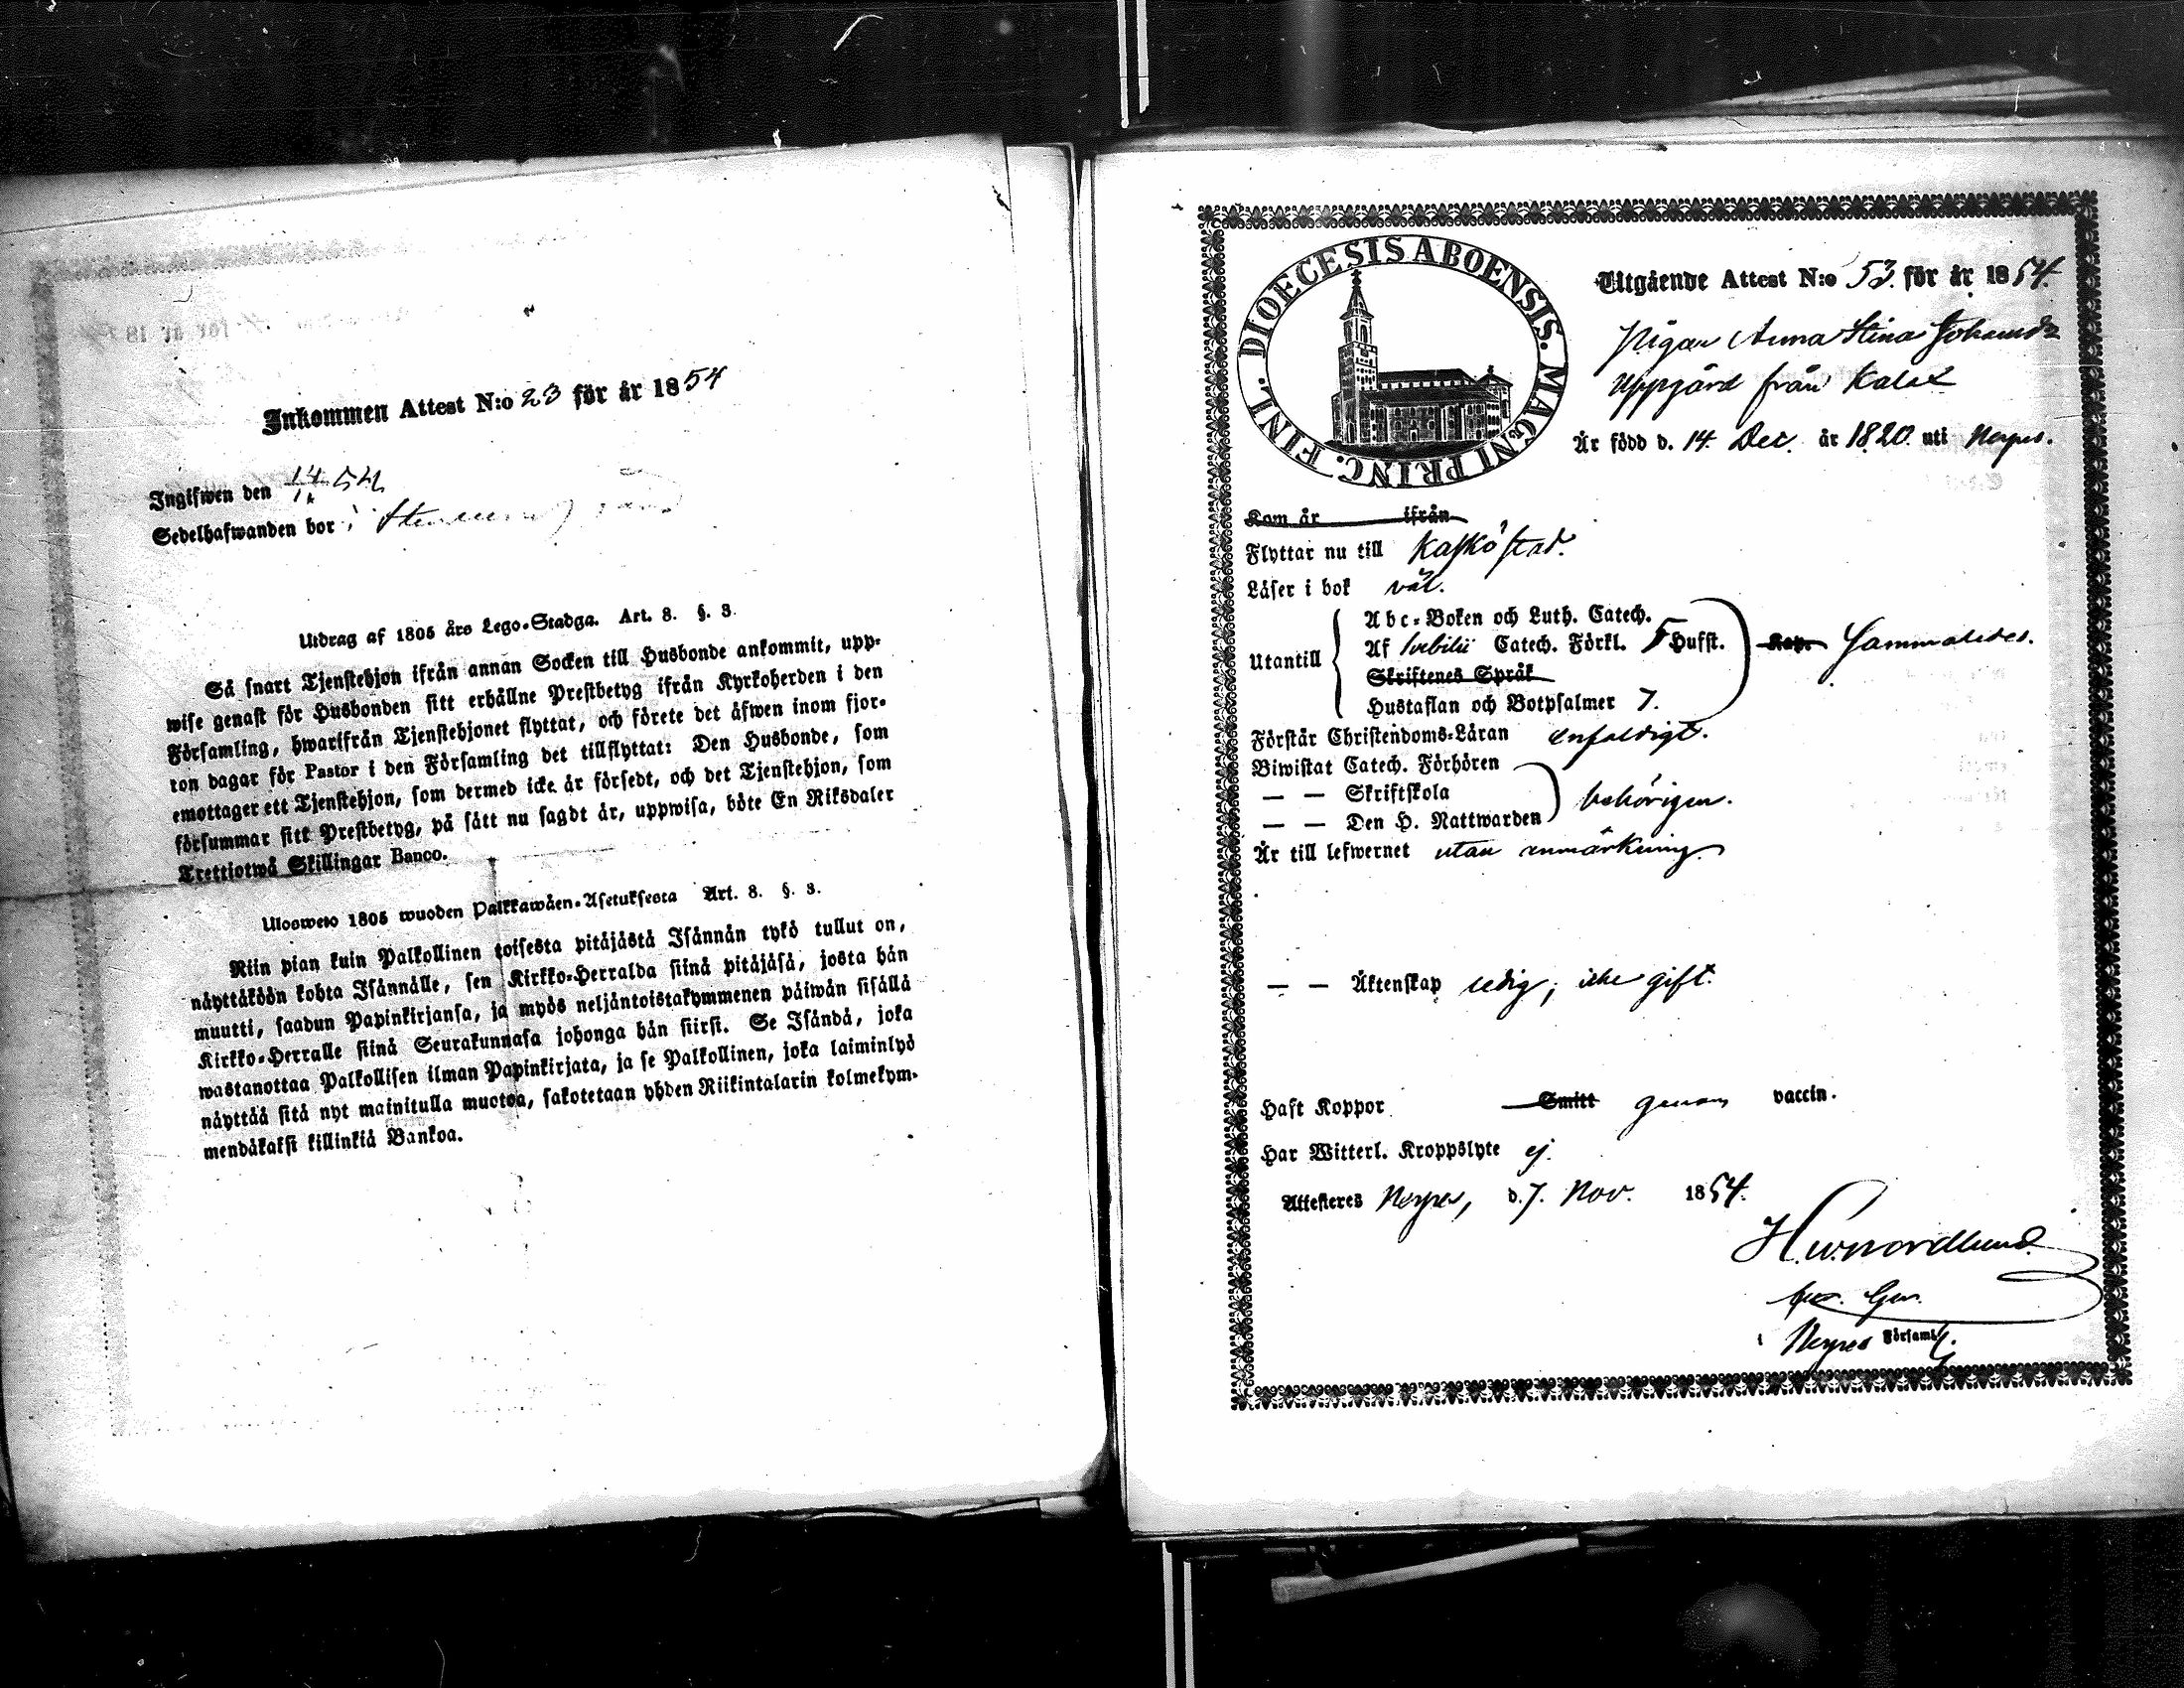 Inkommen Attest N:o 23 för år 1854
Ingifwen den 14 54
Sedelhafwanden bor i
Utdrag af 1805 års Lego-Stadga. Art. 8. §. 3.
Så snart Tjenstehjon ifrån annan Socken till Husbonde ankommit, upp-
wise genast för Husbonden sitt erhållne Prestbetyg ifrån Kyrkoherden i den
Församling, hwarifrån Tjenstehjonet flyttat, och förete det äfwen inom fjor-
ton dagar för Pastor i den Församling det tillflyttat: Den Husbonde, som
emottager ett Tjenstehjon, som dermed icke är försedt, och det Tjenstehjon, som
försummar sitt Prestbetyg, på sätt nu sagdt är, uppwisa, böte En Riksdaler
Trettiotwå Skillingar Banco.
Ulosweto 1805 wuoden Palkkawäen-Asetuksesta Art. 8. §. 3.
Niin pian kuin Palkollinen toisesta pitäjästä Isännän tykö tullut on,
näyttäköön kohta Isännälle, sen Kirkko-Herralda siinä pitäjäsä, josta hän
muutti, saadun Papinkirjansa, ja myös neljäntoistakymmenen päiwän sisällä
Kirkko-Herralle siinä Seurakunnasa johonga hän siirsi. Se Isändä, joka
wastanottaa Palkollisen ilman Papinkirjata, ja se Palkollinen, joka laiminlyö
näyttää sitä nyt mainitulla muotoa, sakotetaan yhden Riikintalarin kolmekym-
mendäkaksi killinkiä Bankoa.
DIOECESIS ABOENSIS. MAGNI PRINC. FINL.
Utgående Attest N:o 53. för år 1854.
Pigan Anna Stina Johansdr
Uppgård från Kalax
Är född d. 14. Dec. år 1820. uti Nerpes.
Kom år ifrån
Flyttar nu till Kaskö stad.
Läser i bok väl.
Utantill
Abc-Boken och Luth. Catech.
Af Svebilii Catech. Förkl. 5 Hufst.
Skriftenes Språk
Hustaflan och Botpsalmer 7.
Kap. Sammaledes.
Förstår Christendoms-Läran enfaldigt.
Biwistat Catech. Förhören
— — Skriftskola
— — Den H. Nattwarden
behörigen.
Är till lefwernet utan anmärkning.
— — Äktenskap ledig, icke gift.
Haft Koppor Smitt genom vaccin.
Har Witterl. Kroppslyte ej.
Attesteres Nerpes, d. 7. Nov. 1854.
H. W. Nordlund.
Nerpes Församl.